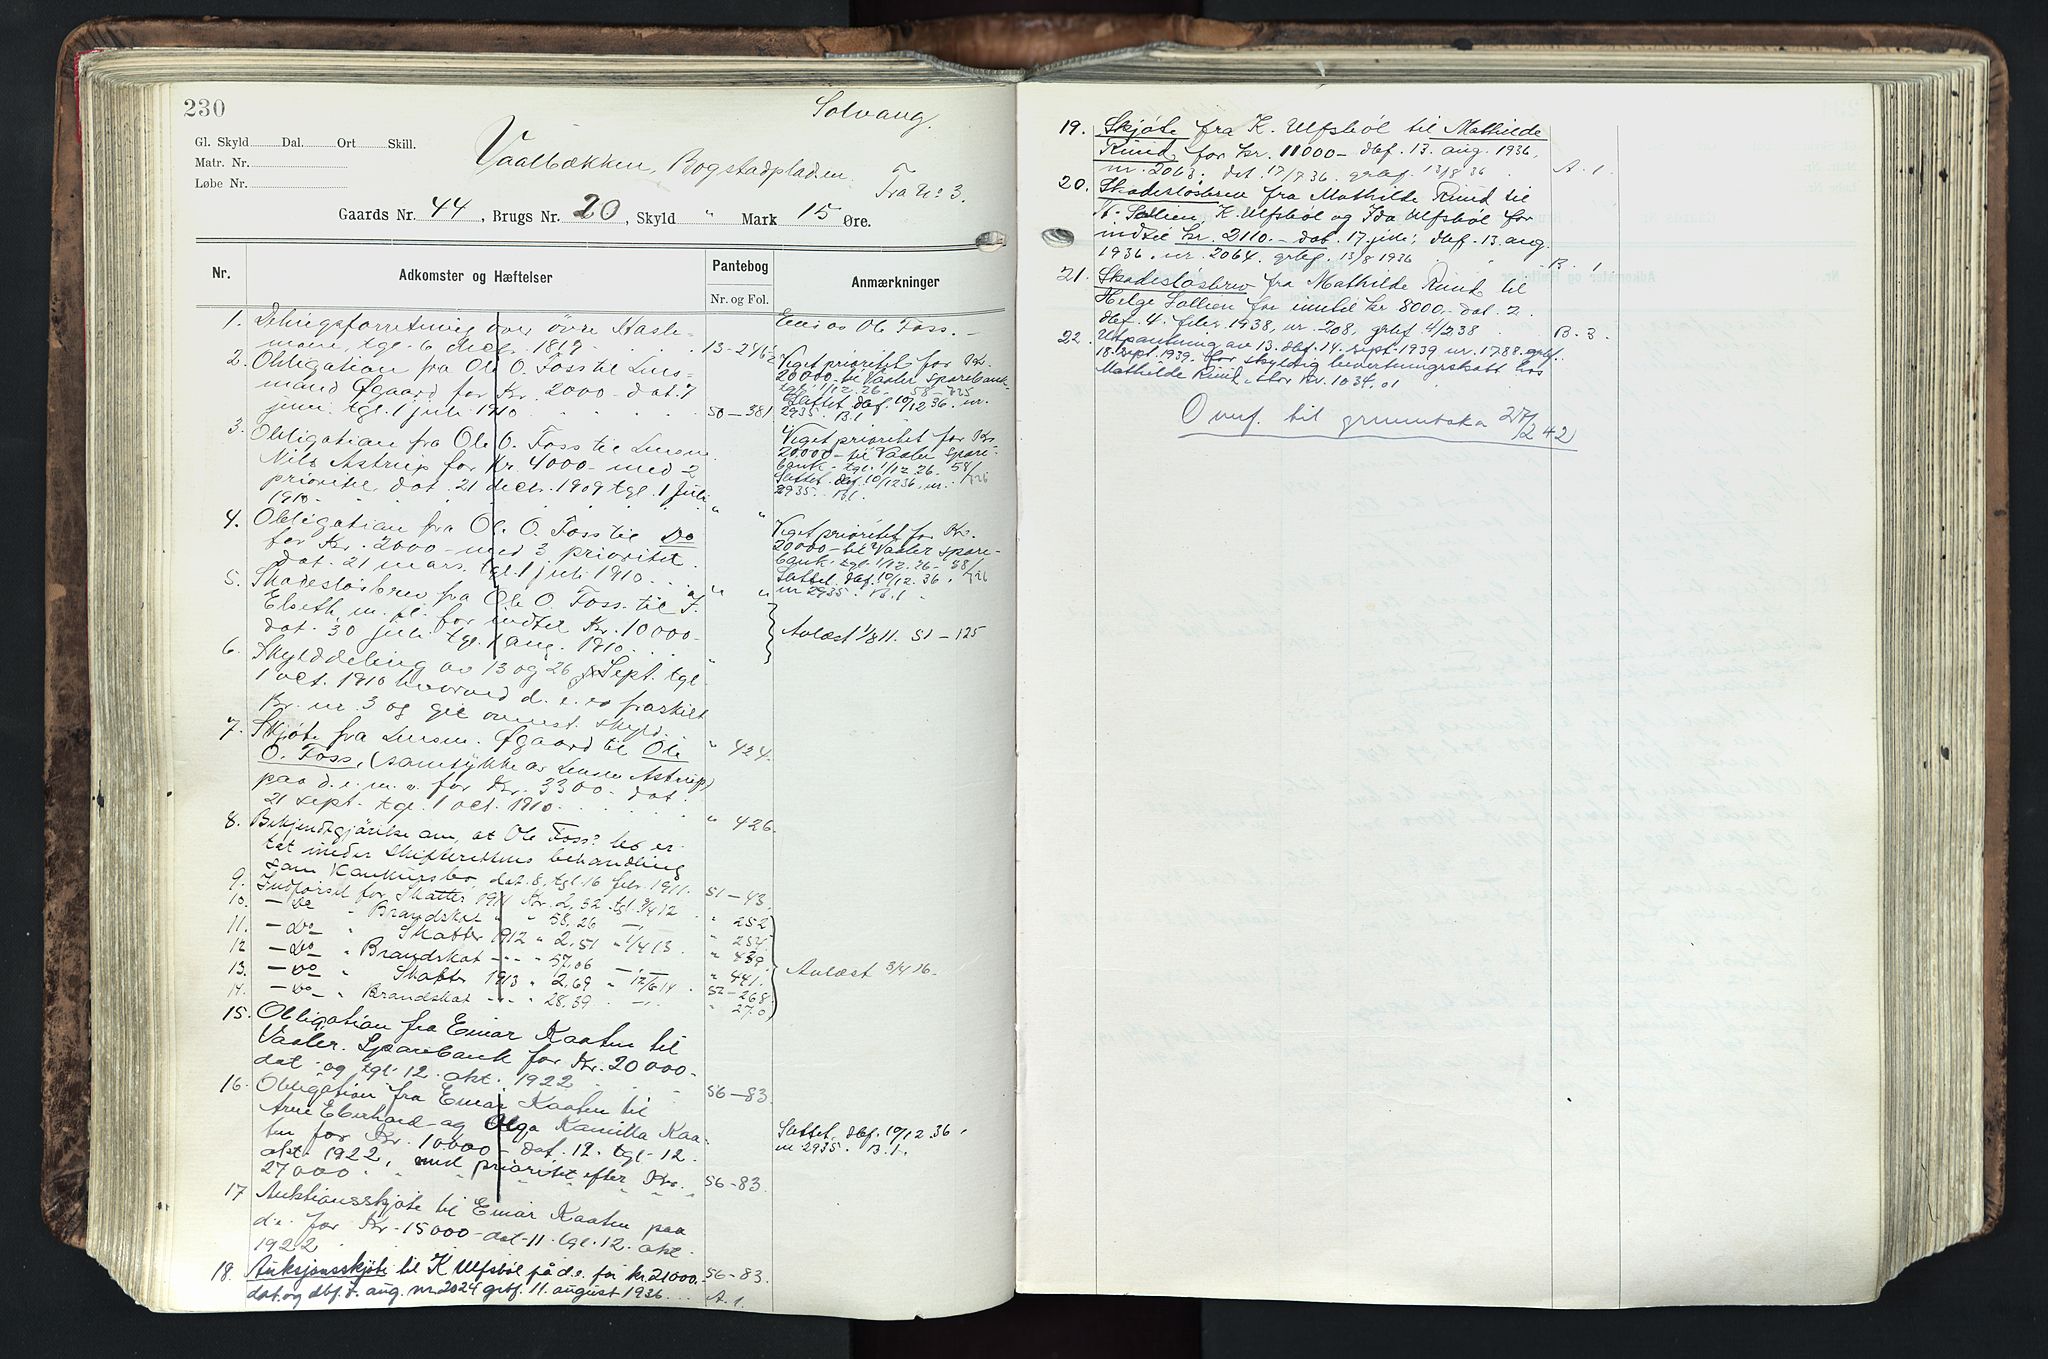 230
Solvang.
Gl. Skyld Dal. Ort Skill.
Matr. Nr.
Løbe Nr.
Vaalbækken, Bogstadpladsen.
Fra No 3.
Gaards Nr. 44, Brugs Nr. 20, Skyld " Mark 15 Øre.
Nr. Adkomster og Hæftelser Pantebog Anmærkninger
Nr. og Fol.
1. Delingsforretning over övre Kasle-
Eies av Ole Foss.
tgl. 6 decbr. 1819 13-246
2. Obligation fra Ole O. Foss til Lens-
mand Øgaard for Kr. 2000 - dat. 7
juni, tgl. 1 juli 1910 50-381
Viget prioritet for Kr.
20000 - til Vaaler sparebank
tgl. 1/12.26. 58-725
Slettet dbf. 10/12 36. nr.
2935. B.1
3. Obligation fra Ole O. Foss til Lensm.
Nils Astrup for Kr. 4000 - med 2
prioritet, dat. 21 decbr. 1909 tgl. 1 juli
1910 " "
Viget prioritet for Kr.
20000 - til Vaaler spare-
bank - tgl. 1/12 26. 58/
Slettet dbf. 10/12 36, nr.
2935. B.1.
4. Obligation fra Ole O. Foss til Do
for Kr. 2000 - med 3 prioritet
dat. 21 mars, tgl. 1 juli 1910 " "
Viget prioritet for Kr.
20000 - til Vaaler spare-
bank - tgl. 1/12. 26 - 58/
Slettet dbf. 10/12. 36.
nr 2935. B.1.
5. Skadeslösbrev fra Ole O. Foss til
Elseth m. fl. for indtil Kr. 10000 -
dat. 30 juli tgl. 1 aug. 1910
Avlæst 1/8 11. 51-125
6. Skylddeling av 13 og 26 Sept. tgl.
1 oct. 1910 hvorved d. e. er fraskilt
Br. nr. 3 og git ovennst. skyld. " 424.
7. Skjöte fra Lensm. Øgaard til Ole
O. Foss, (samtykke av Lensm Astrup)
paa d. e. m. v. for Kr. 3300 - dat.
21 sept. tgl. 1 oct. 1910 " 426.
8. Bekjendtgjörelse om, at Ole Foss' bo er
tat under skifterettens behandling
som Konkursbo dat. 8, tgl. 16 febr. 1911. 51-43.
9. Indförsel for Skatter 1911 Kr. 2,52 tgl. 9/4 12 " 252
10. - Do " Brandskat " " 58,26 - " 254.
11. - Do " Skatter 1912 " 2,51 " 1/4 13 " 439
12 - Do " Brandskat - - " 57,06 - " 441.
13. - Do " Skatter 1913 " 2,69 " 12/6 14 52-268
14. - Do " Brandskat - - " 28,39 - " 270
Avlæst 3/4 16.
15. Obligation fra Einar Kaaten til
Vaaler Sparebank for Kr. 20000 -
dat. og tgl. 12. okt. 1922 56-83.
16. Obligation fra Einar Kaaten til
Arne Eberhard og Olga Kamilla Kaa-
ten for Kr. 10000 - dat. 12. tgl. 12.
okt. 1922, med prioritet efter Kr.
27000 56-83.
Slettet. dbf. 10/12. 36,
nr 2935. B.1.
17 Auktionsskjöte til Einar Kaaten paa
d.e. for Kr. 15000 - dat. 11. tgl. 12. okt.
1922 56-83.
18. Auksjonsskjöte til K Ulfsböl på d.e. for kr. 21000.
dat. og dbf. 7. aug. nr 2024 grbf. 11. august 1936 A. 1.
19. Skjøte fra K. Ulfsböl til Mathilde
Rund for kr. 11000 - dbf. 13. aug. 1936,
nr. 2063. dat. 17/7 36. grbf. 13/8 36 A. 1.
20. Skadeslösbrev fra Mathilde Rund til
Sollien, K. Ulfsböl og Ida Ulfsböl for
indtil kr. 2110. - dat. 17. juli, dbf. 13. aug.
1936. nr. 2064. grbf. 13/8 1936 B. 1
21. Skadeslösbrev fra Mathilde Rund til
Helge Sollien for inntil kr 8000, - dat. 2.
dbf. 4. febr. 1938, nr. 208, grbf. 4/2 38 B. 3.
22. Utpantning av 13. dbf. 14. sept. 1939 nr. 1788. grbf.
18. sept. 1939. for skyldig bevertningsskatt hos
Mathilde Rund, stor kr. 1034,01
Overf. til grunnboka 27/2 42